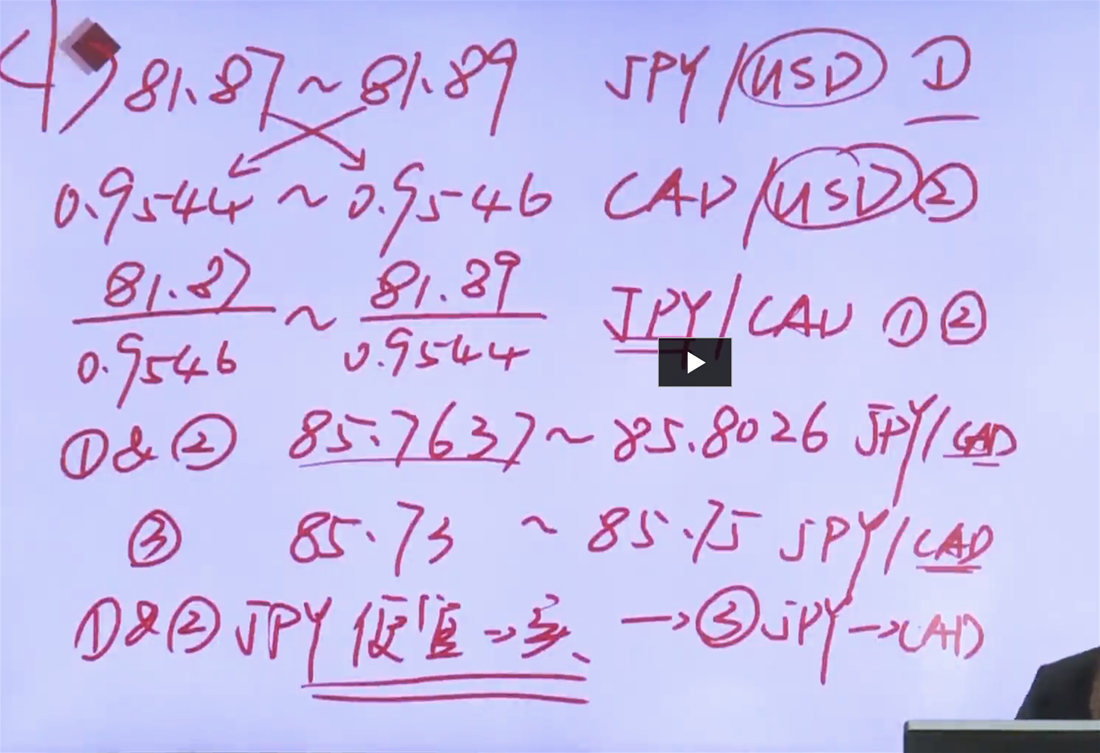 (4) 81.87 ~ 81.89 JPY/USD ①
0.9544 ~ 0.9546 CAD/USD ②
81.87/0.9546 ~ 81.89/0.9544 JPY/CAD ① ②
①&② 85.7637 ~ 85.8026 JPY/CAD
③ 85.73 ~ 85.75 JPY/CAD
①&② JPY 便宜 → 买 → ③ JPY → CAD